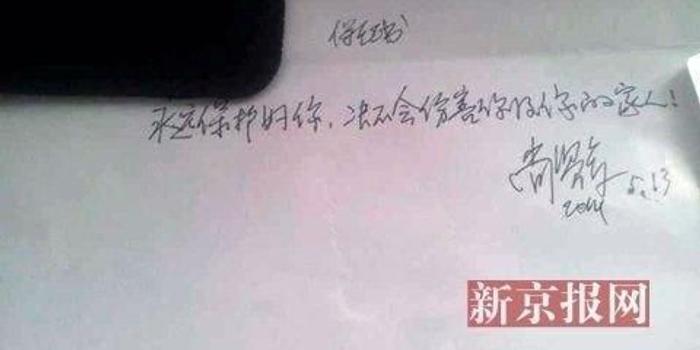 保证书
永远保护时你,决不会伤害你及你的家人!
尚贤 5.13
2014
新京报网